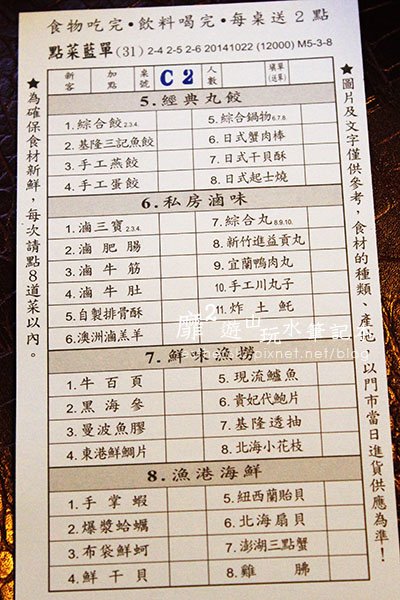 食物吃完•飲料喝完•每桌送2點
點菜藍單(31) 2-4 2-5 2-6 20141022 (12000) M5-3-8
新客 加點 桌號 C2 人數 填單(送單)
★為確保食材新鮮，每次請點8道菜以內。
5.經典丸餃
1.綜合餃2.3.4.
2.基隆三記魚餃
3.手工燕餃
4.手工蛋餃
5.綜合鍋物6.7.8.
6.日式蟹肉棒
7.日式干貝酥
8.日式起士燒
6.私房滷味
1.滷三寶2.3.4.
2.滷肥腸
3.滷牛筋
4.滷牛肚
5.自製排骨酥
6.澳洲滷羔羊
7.綜合丸8.9.10.
8.新竹進益貢丸
9.宜蘭鴨肉丸
10.手工川丸子
11.炸土魠
7.鮮味漁撈
1.牛百頁
2.黑海參
3.曼波魚膠
4.東港鮮鯛片
5.現流鱸魚
6.貴妃代鮑片
7.基隆透抽
8.北海小花枝
8.漁港海鮮
1.手掌蝦
2.爆漿蛤蠣
3.布袋鮮蚵
4.鮮干貝
5.紐西蘭貽貝
6.北海扇貝
7.澎湖三點蟹
8.雞腸
★圖片及文字僅供參考，食材的種類、產地，以門市當日進貨供應為準！